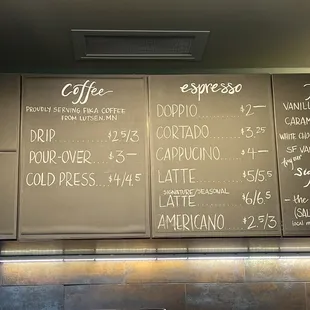 Coffee
PROUDLY SERVING FIKA COFFEE
FROM LUTSEN, MN
DRIP.........$2.5/3
POUR-OVER.......$3—
COLD PRESS.....$4/4.5
espresso
DOPPIO.........$2—
CORTADO.......$3.25
CAPPUCINO.....$4—
LATTE.........$5/5.5
SIGNATURE/SEASONAL
LATTE.........$6/6.5
AMERICANO....$2.5/3
VANILL
CARAM
WHITE CHO
SF VAN
- the
(SAL